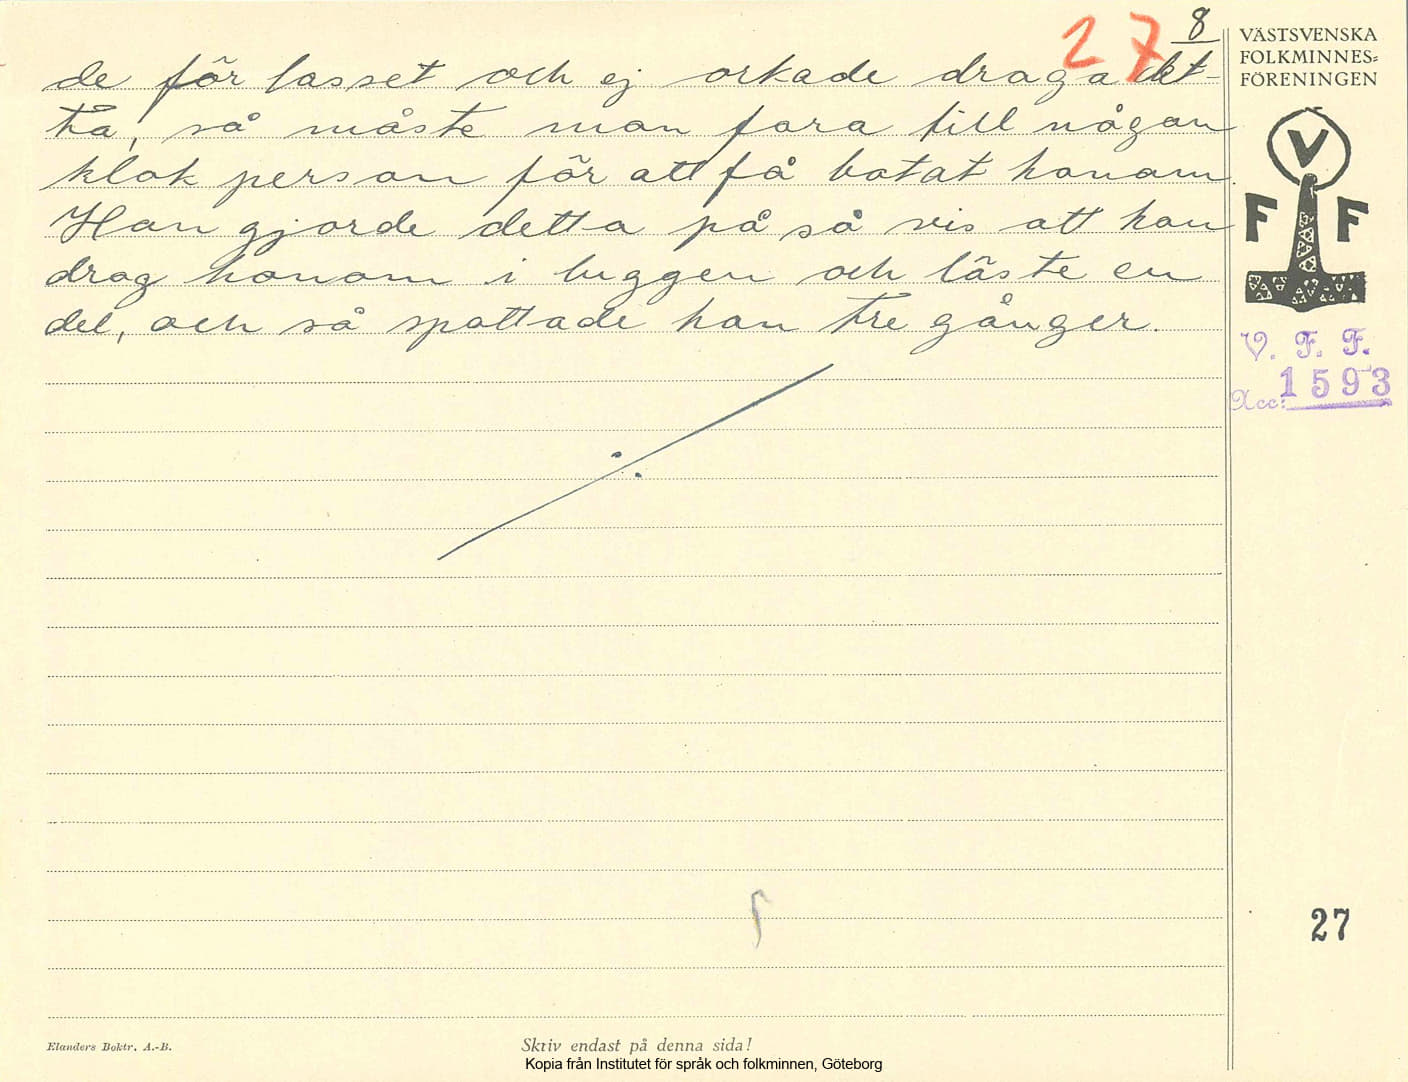 27 8
VÄSTSVENSKA
FOLKMINNES=
FÖRENINGEN
de för lasset och ej orkade draga det-
ta, så måste man fara till någon
klok person för att få botat honom.
Han gjorde detta på så vis att han
drog honom i luggen och läste en
del, och så spottade han tre gånger.
V
F F
V. F. F.
Acc: 1593
27
Elanders Boktr. A.-B.
Skriv endast på denna sida!
Kopia från Institutet för språk och folkminnen, Göteborg